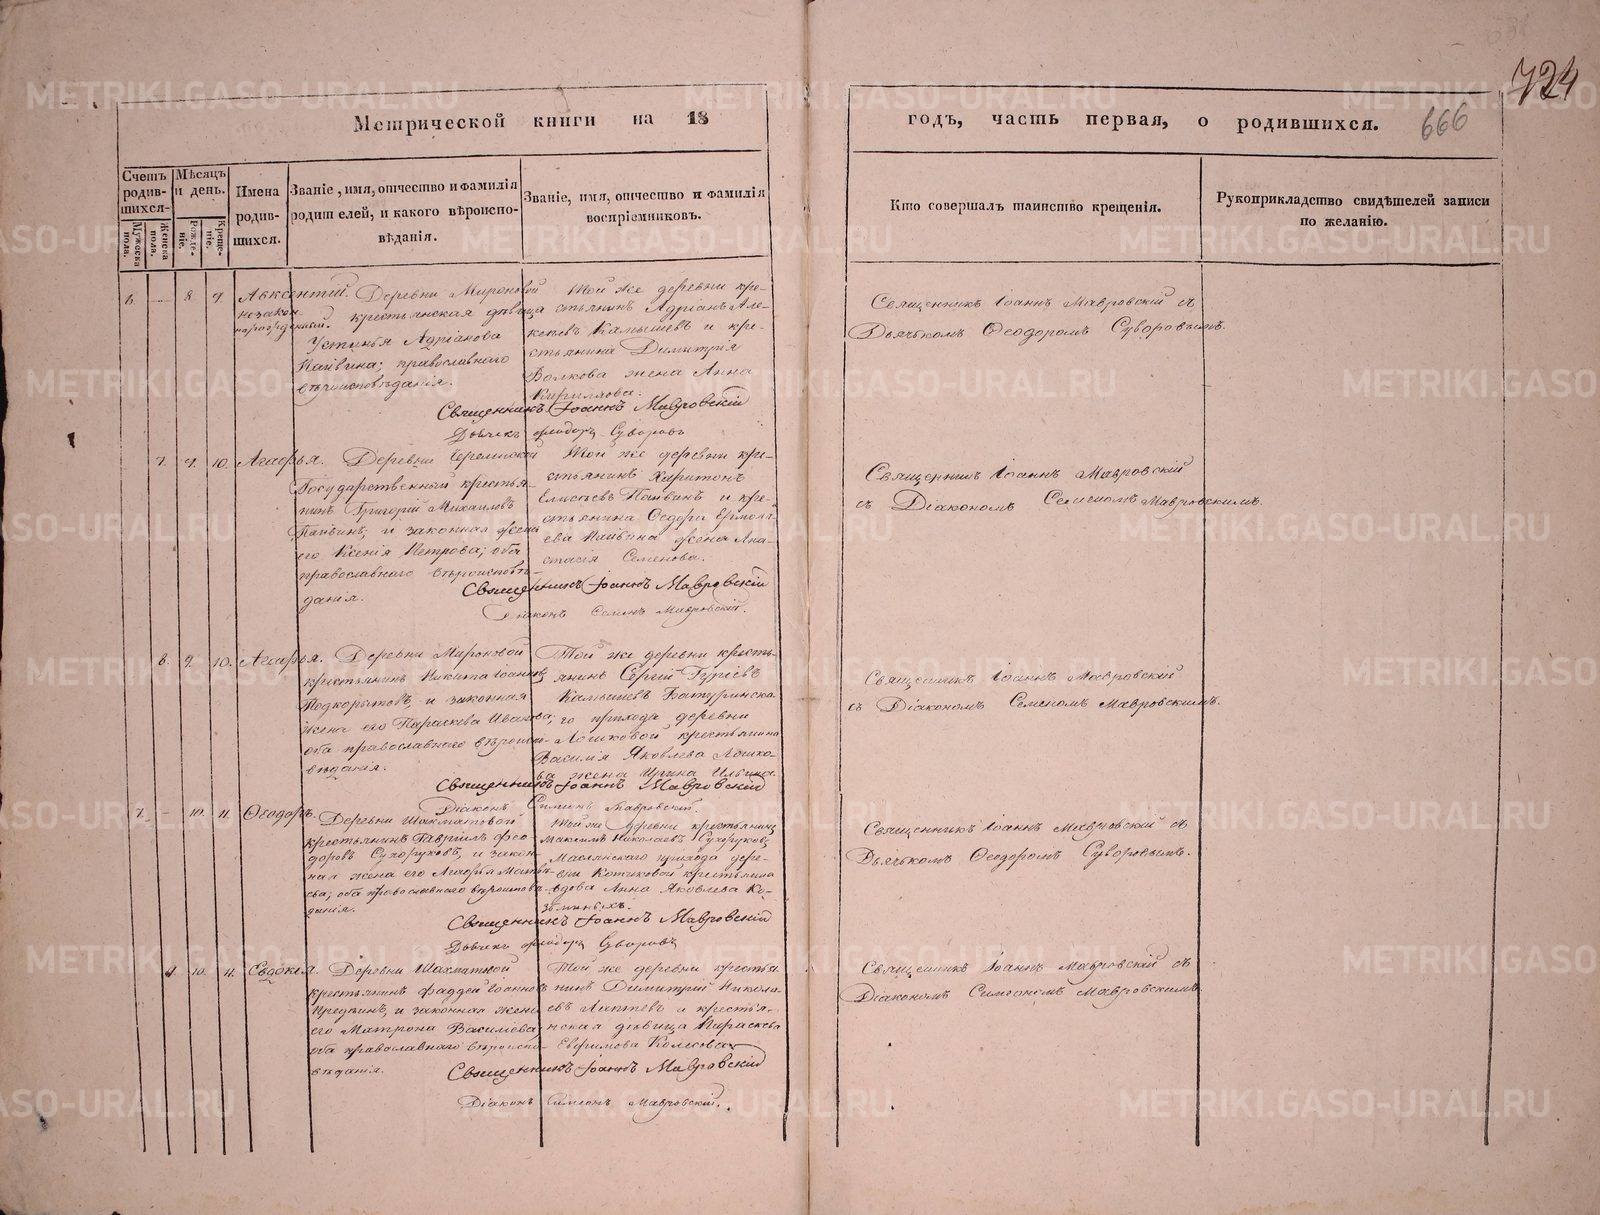 724
666
Метрической книги на 18
годъ, часть первая, о родившихся.
Счетъ родив-шихся.
Мужеска пола.
Женска пола.
Мѣсяцъ и день.
Рожде-ніе.
Креще-ніе.
Имена родив-шихся.
Званіе, имя, отчество и фамилія
родителей, и какого вѣроиспо-
вѣданія.
Званіе, имя, отчество и фамилія
воспріемниковъ.
Кто совершалъ таинство крещенія.
Рукоприкладство свидѣтелей записи
по желанію.
6. 8 9. Авксентій.
незакон
норожденный.
Деревни Мироновой
крестьянская дѣвица
Устинья Адріанова
Пайвина; православнаго
вѣроисповѣданія.
Той же деревни кре-
стьянинъ Адріанъ Але-
ксѣевъ Камышевъ и кре-
стьянина Димитрія
Волкова жена Анна
Кириллова.
Священникъ Іоаннъ Мавровскій
Дьячекъ Ѳеодоръ Суворовъ
Священникъ Іоаннъ Мавровскій съ
Дьячькомъ Ѳеодоромъ Суворовымъ.
7. 9. 10. Агаѳья.
Деревни
Государственный крестья-
нинъ Григорій Михаиловъ
Пайвинъ, и законная жена
его Ксенія Петрова; оба
православнаго вѣроисповѣ-
данія.
Той же деревни кре-
стьянинъ Харитонъ
Елисѣевъ Пайвинъ и кре-
стьянина Ѳедора Ермола-
ева Пайвина жена Ана-
стасія Семенова.
Священникъ Іоаннъ Мавровскій
Діаконъ Семенъ Мавровскій.
Священникъ Іоаннъ Мавровскій
съ Діакономъ Семеномъ Мавровскимъ.
8. 9. 10. Агаѳья.
Деревни Мироновой
крестьянинъ Никита Іоанновъ
Подкорытовъ, и законная
жена его Параскева Иванова;
оба православнаго вѣроиспо-
вѣданія.
Той же деревни кресть-
янинъ Сергій Гуріевъ
Камышевъ Батуринска-
го прихода деревни
крестьянина
Василія Яковлева
жена Ирина Ильина.
Священникъ Іоаннъ Мавровскій
Діаконъ Симеонъ Мавровскій.
Священникъ Іоаннъ Мавровскій
съ Діакономъ Семеномъ Мавровскимъ.
7. - 10. 11. Ѳеодоръ.
Деревни Шахматовой
крестьянинъ Гавріилъ Ѳео-
доровъ Сухоруковъ, и закон-
ная жена его Агаѳья Матвѣ-
ева; оба православнаго вѣроисповѣ-
данія.
Той же деревни крестьянинъ
Максимъ Николаевъ Сухоруковъ,
Маслянскаго прихода дере-
вни Котиковой крестьянина
вдова Анна Яковлева Ко-
Священникъ Іоаннъ Мавровскій
Дьячекъ Ѳеодоръ Суворовъ
Священникъ Іоаннъ Мавровскій съ
Дьячькомъ Ѳеодоромъ Суворовымъ.
9. 10. 11. Евдокея.
Деревни Шахматовой
крестьянинъ Фаддей Іоанновъ
и законная жена
его Матрона Васильева;
оба православнаго вѣроиспо-
вѣданія.
Той же деревни крестья-
нинъ Димитрій Никола-
евъ Лаптевъ и крестья-
нская дѣвица Параскева
Евфимова Колесова.
Священникъ Іоаннъ Мавровскій
Діаконъ Симеонъ Мавровскій.
Священникъ Іоаннъ Мавровскій съ
Діакономъ Симеономъ Мавровскимъ.
METRIKI.GASO-URAL.RU